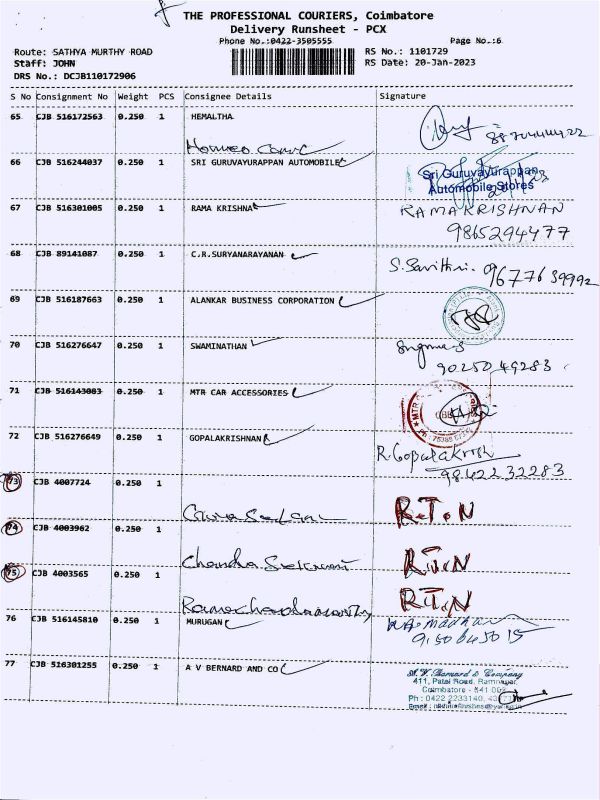 THE PROFESSIONAL COURIERS, Coimbatore
Delivery Runsheet - PCX
Phone No.:0422-3505555
Page No.:6
Route: SATHYA MURTHY ROAD
RS No.: 1101729
Staff: JOHN
RS Date: 20-Jan-2023
DRS No.: DCJB110172906
S No Consignment No Weight PCS Consignee Details Signature
65 CJB 516172563 0.250 1 HEMALTHA
66 CJB 516244037 0.250 1 SRI GURUVAYURAPPAN AUTOMOBILE
Sri Guruvayurappan
Automobile Stores
67 CJB 516301005 0.250 1 RAMA KRISHNA RAMAKRISHNAN
9865294477
68 CJB 89141087 0.250 1 C.R.SURYANARAYANAN S. Savithri. 9677639992
69 CJB 516187663 0.250 1 ALANKAR BUSINESS CORPORATION
70 CJB 516276647 0.250 1 SWAMINATHAN
90250 49283
71 CJB 516143003 0.250 1 MTR CAR ACCESSORIES
MTR
72 CJB 516276649 0.250 1 GOPALAKRISHNAN R. Gopalakrish
9842232283
73 CJB 4007724 0.250 1
R.T.N
74 CJB 4003962 0.250 1
Chandra R.T.N
75 CJB 4003565 0.250 1
R.T.N
76 CJB 516145810 0.250 1 MURUGAN
77 CJB 516301255 0.250 1 A V BERNARD AND CO
A.V. Barnard & Company
411, Patel Road, Ramnagar,
Coimbatore - 641 009
Ph : 0422 2233140,